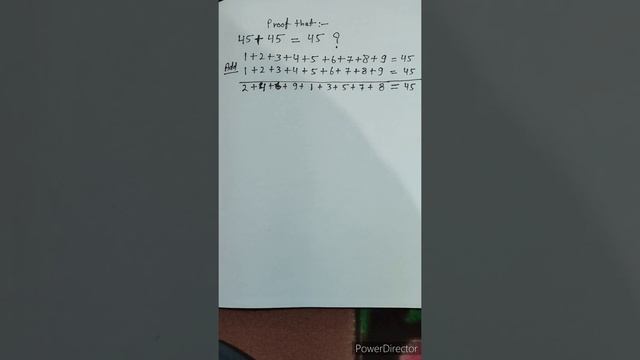 Proof that :-
45 + 45 = 45 ?
1+2+3+4+5+6+7+8+9 = 45
Add 1+2+3+4+5+6+7+8+9 = 45
2+4+6+9+1+3+5+7+8 = 45
PowerDirector